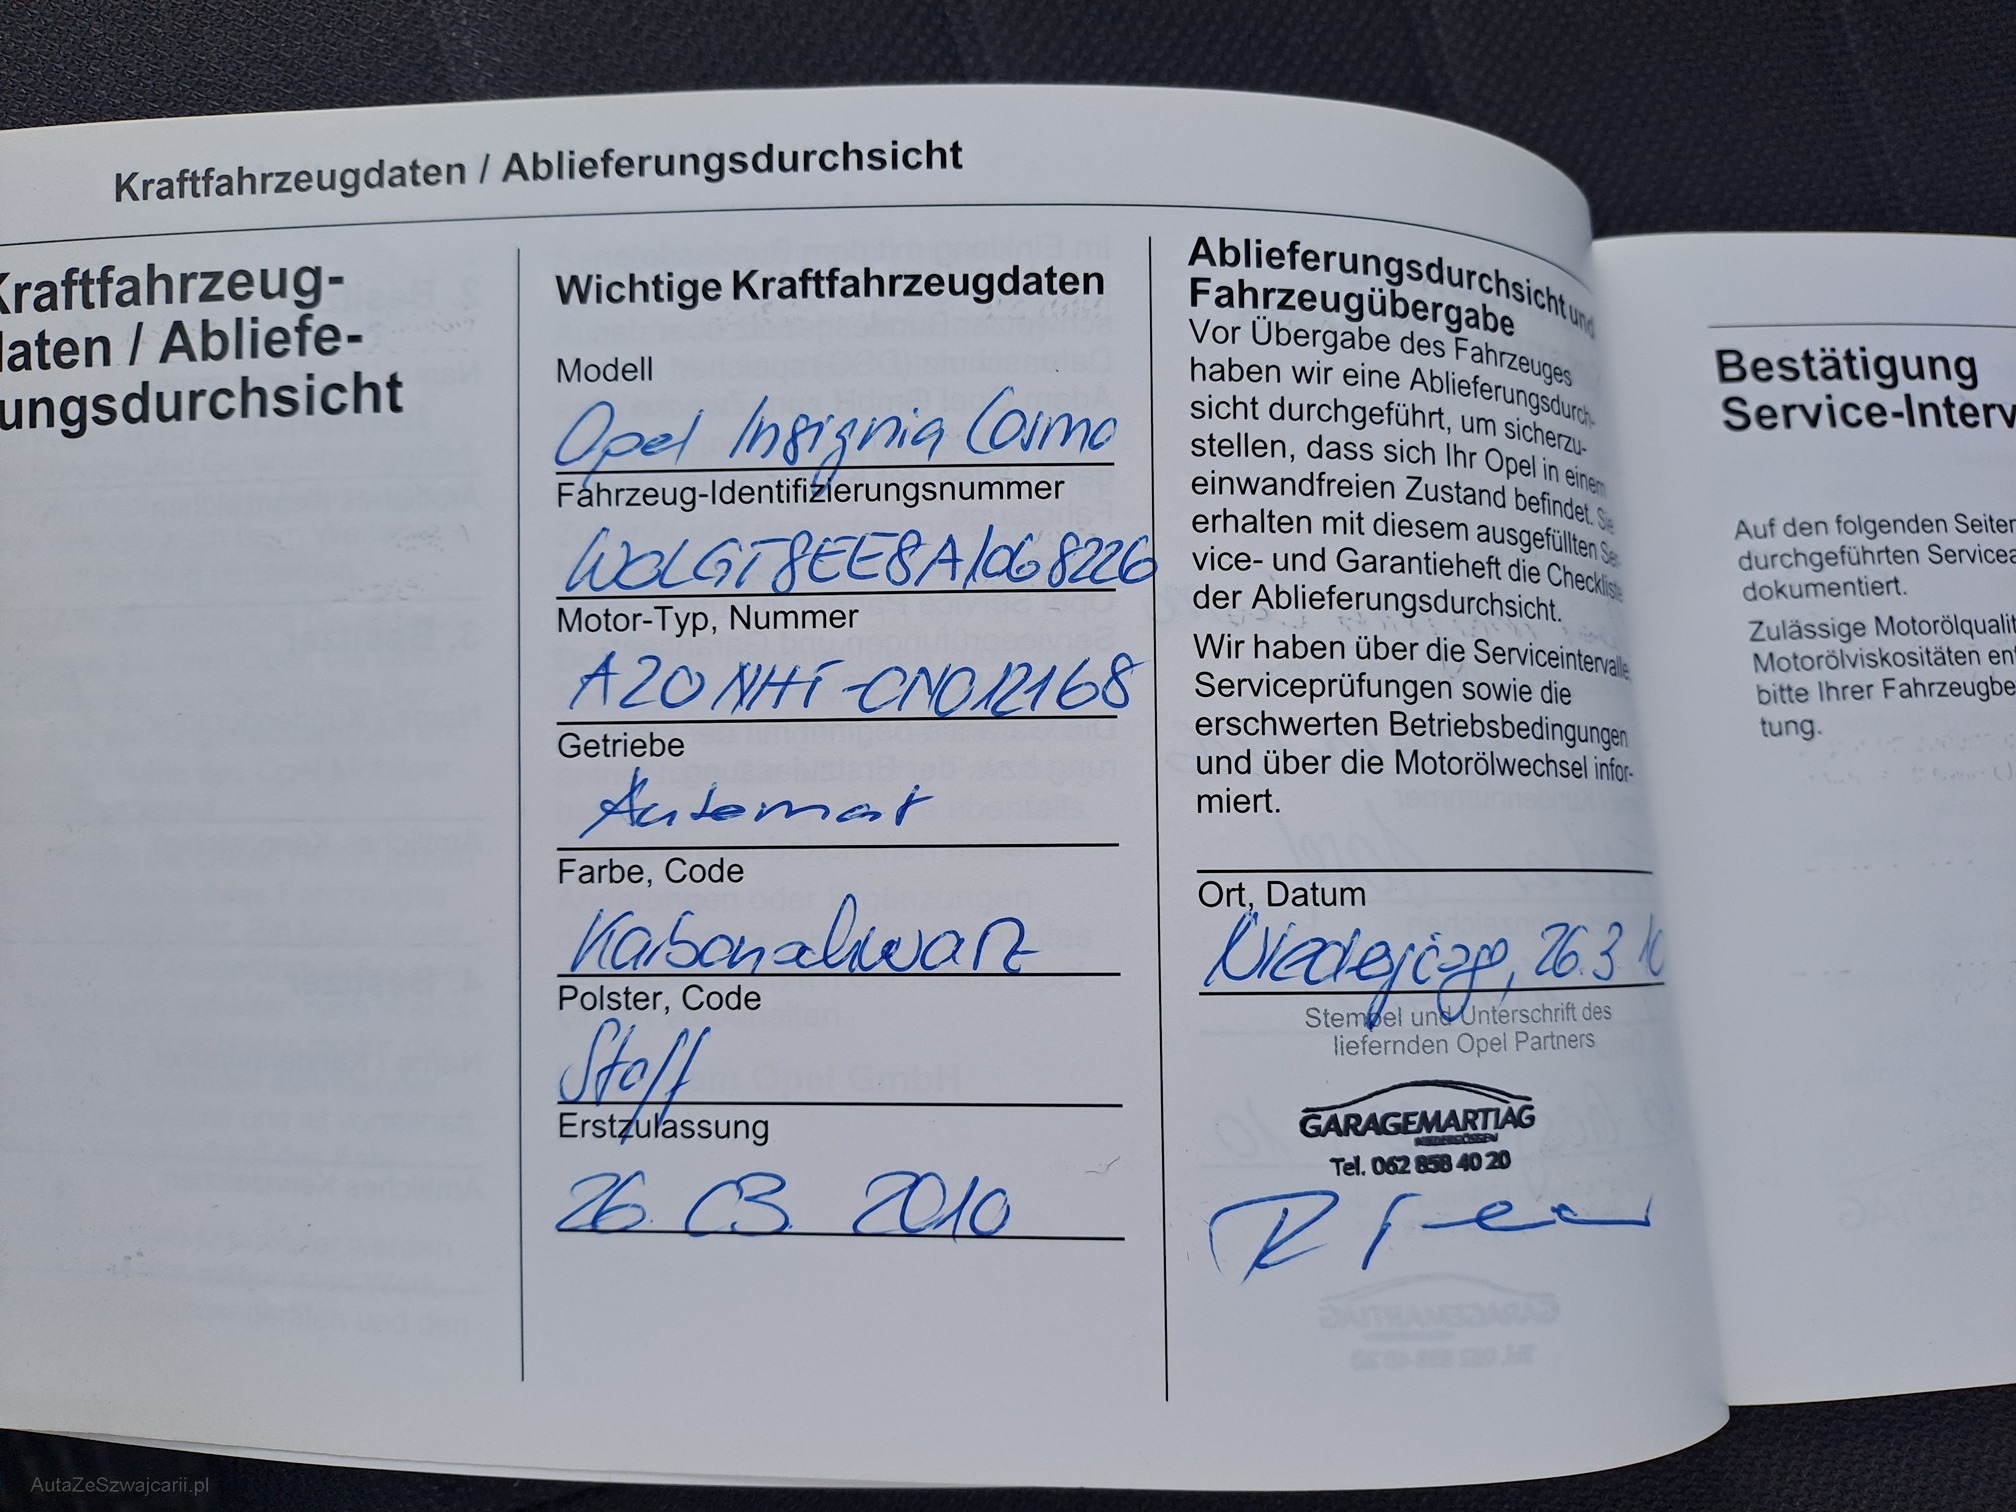 Kraftfahrzeugdaten / Ablieferungsdurchsicht
Kraftfahrzeug-
daten / Abliefe-
rungsdurchsicht
Wichtige Kraftfahrzeugdaten
Modell
Opel Insignia Cosmo
Fahrzeug-Identifizierungsnummer
W0LGT8EE8A1068226
Motor-Typ, Nummer
A20NHT-CN012168
Getriebe
Automat
Farbe, Code
Karbonschwarz
Polster, Code
Stoff
Erstzulassung
26. 03. 2010
Ablieferungsdurchsicht und
Fahrzeugübergabe
Vor Übergabe des Fahrzeuges
haben wir eine Ablieferungsdurch-
sicht durchgeführt, um sicherzu-
stellen, dass sich Ihr Opel in einem
einwandfreien Zustand befindet. Sie
erhalten mit diesem ausgefüllten Ser-
vice- und Garantieheft die Checkliste
der Ablieferungsdurchsicht.
Wir haben über die Serviceintervalle,
Serviceprüfungen sowie die
erschwerten Betriebsbedingungen
und über die Motorölwechsel infor-
miert.
Ort, Datum
Niedergösgen, 26.3.10
Stempel und Unterschrift des
liefernden Opel Partners
GARAGEMARTIAG
NIEDERGÖSGEN
Tel. 062 858 40 20
Bestätigung
Service-Interv
Auf den folgenden Seiten
durchgeführten Servicea
dokumentiert.
Zulässige Motorölqualit
Motorölviskositäten ent
bitte Ihrer Fahrzeugbe
tung.
AutaZeSzwajcarii.pl